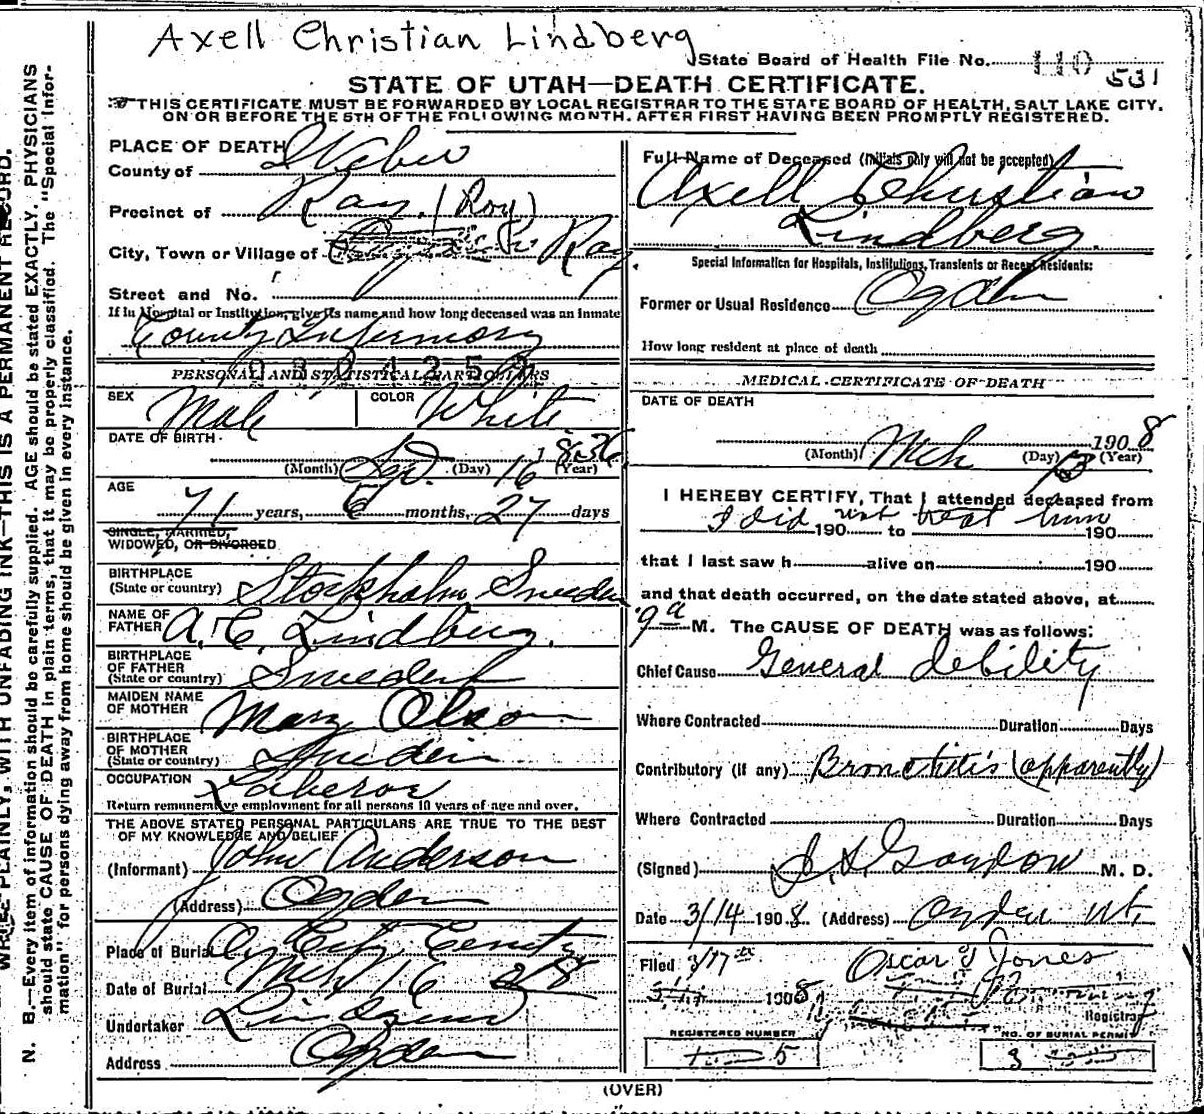 Axell Christian Lindberg
State Board of Health File No. 110
531
STATE OF UTAH—DEATH CERTIFICATE.
THIS CERTIFICATE MUST BE FORWARDED BY LOCAL REGISTRAR TO THE STATE BOARD OF HEALTH, SALT LAKE CITY.
ON OR BEFORE THE 5TH OF THE FOLLOWING MONTH. AFTER FIRST HAVING BEEN PROMPTLY REGISTERED.
N. B.—Every item of information should be carefully supplied. AGE should be stated EXACTLY. PHYSICIANS
should state CAUSE OF DEATH in plain terms, that it may be properly classified. The "Special Infor-
mation" for persons dying away from home should be given in every instance.
WRITE PLAINLY, WITH UNFADING INK—THIS IS A PERMANENT RECORD.
PLACE OF DEATH
County of Weber
Precinct of Ray. (Roy)
City, Town or Village of Ray
Street and No.
If in Hospital or Institution, give its name and how long deceased was an inmate
County Infermory
PERSONAL AND STATISTICAL PARTICULARS
SEX Male COLOR White
DATE OF BIRTH
(Month) Sep. (Day) 16 1836 (Year)
AGE
71 years, 6 months, 27 days
SINGLE, MARRIED,
WIDOWED, OR DIVORCED
BIRTHPLACE
(State or country) Stockholm Sweden
NAME OF
FATHER A. C. Lindberg.
BIRTHPLACE
OF FATHER
(State or country) Sweden
MAIDEN NAME
OF MOTHER Mary Olson
BIRTHPLACE
OF MOTHER
(State or country) Sweden
OCCUPATION Laberor
Return remunerative employment for all persons 10 years of age and over.
THE ABOVE STATED PERSONAL PARTICULARS ARE TRUE TO THE BEST
OF MY KNOWLEDGE AND BELIEF
(Informant) John Anderson
(Address) Ogden
Place of Burial City
Date of Burial Mch 16
Undertaker
Address Ogden
Full Name of Deceased (Initials only will not be accepted)
Axell Christian
Lindberg.
Special Information for Hospitals, Institutions, Transients or Recent Residents:
Former or Usual Residence Ogden
How long resident at place of death
MEDICAL CERTIFICATE OF DEATH
DATE OF DEATH
(Month) Mch (Day) 13 1908 (Year)
I HEREBY CERTIFY, That I attended deceased from
I did not treat him
190 to 190
that I last saw h alive on 190
and that death occurred, on the date stated above, at
9 a M. The CAUSE OF DEATH was as follows:
Chief Cause General debility
Where Contracted Duration Days
Contributory (if any) Bronchitis (apparently)
Where Contracted Duration Days
(Signed) Gordon M. D.
Date 3/14 1908 (Address) Ogden Ut.
Filed 3/17th Oscar Jones
1908
Registrar
REGISTERED NUMBER
5
NO. OF BURIAL PERMIT
3
(OVER)